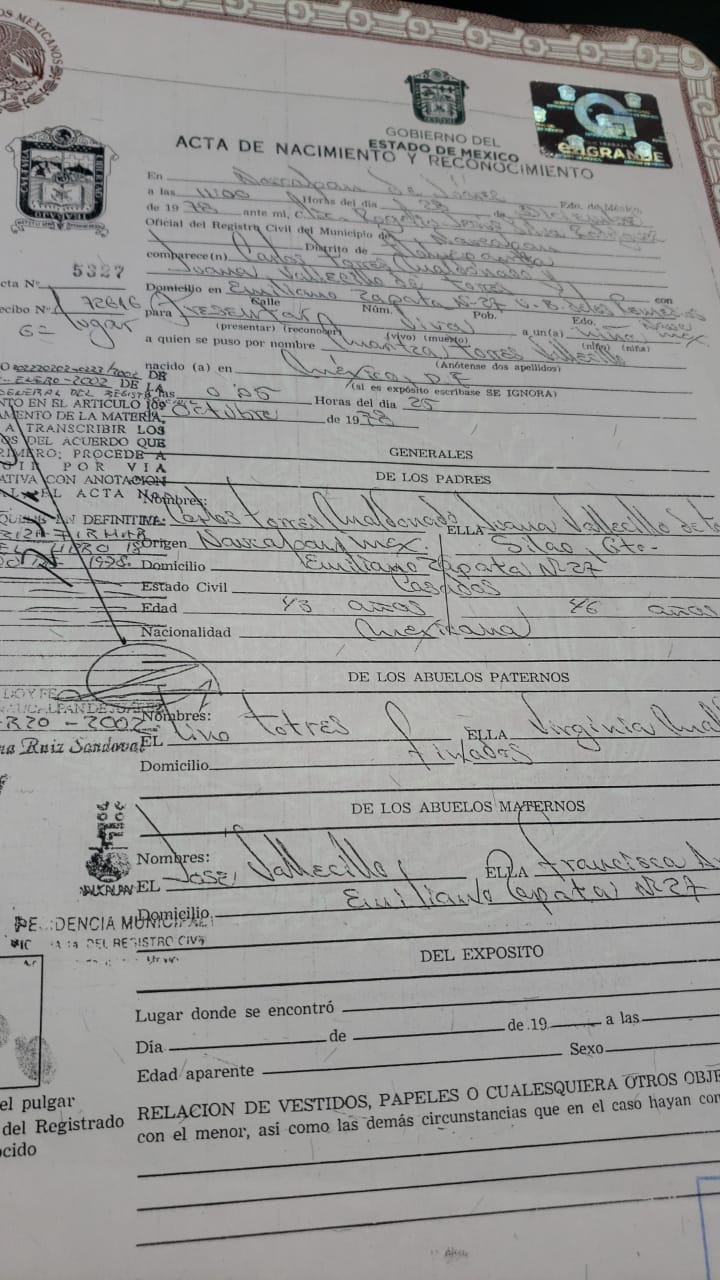 OS MEXICANOS
GOBIERNO DEL
ESTADO DE MEXICO
GRANDE
ACTA DE NACIMIENTO Y RECONOCIMIENTO
En Naucalpan de Juárez Edo. de México,
a las 11:00 Horas del día 28 de Diciembre
de 1978 ante mi, C. Lic. Rogelio
Oficial del Registro Civil del Municipio de Naucalpan
Distrito de Tlalnepantla
comparece(n) Carlos Torres Maldonado y
Juana Vallecillo de Torres con
Domicilio en Emiliano Zapata Nº 27
Calle Núm. Pob. Edo.
para Presentar Viva a un(a) Niña
(presentar) (reconocer) (vivo) (muerto) (niño) (niña)
a quien se puso por nombre Maritza Torres Vallecillo
(Anótense dos apellidos)
nacido (a) en México, D.F.
(si es expósito escríbase SE IGNORA)
a las 0:05 Horas del día 25
Octubre de 1978
cta Nº 5327
ecibo Nº 72616
6= lugar
ENERO-2002 DE LA
NTO EN EL ARTICULO 109
AMENTO DE LA MATERIA,
A TRANSCRIBIR LOS
OS DEL ACUERDO QUE
RIMERO; PROCEDE A
POR VIA
ATIVA CON ANOTACION
EL ACTA No.
EN DEFINITIVA:
1978.
GENERALES
DE LOS PADRES
Nombres: Carlos Torres Maldonado ELLA Juana Vallecillo de To
Origen Naucalpan, Mex. Silao, Gto.
Domicilio Emiliano Zapata Nº 27
Estado Civil Casados
Edad 43 años 46 años
Nacionalidad Mexicana
DE LOS ABUELOS PATERNOS
Nombres:
EL Lino Torres ELLA Virginia Mal
Domicilio Finados
DOY FE
NAUCALPAN DE JUAREZ
RZO-2002
na Ruiz Sandoval
DE LOS ABUELOS MATERNOS
Nombres:
EL José Vallecillo ELLA Francisca
Domicilio Emiliano Zapata Nº 27
NAUCALPAN
PRESIDENCIA MUNICIPAL
DEL REGISTRO CIVI
DEL EXPOSITO
Lugar donde se encontró
Día de de 19 a las
Edad aparente Sexo
el pulgar
del Registrado
ocido
RELACION DE VESTIDOS, PAPELES O CUALESQUIERA OTROS OBJE
con el menor, así como las demás circunstancias que en el caso hayan con